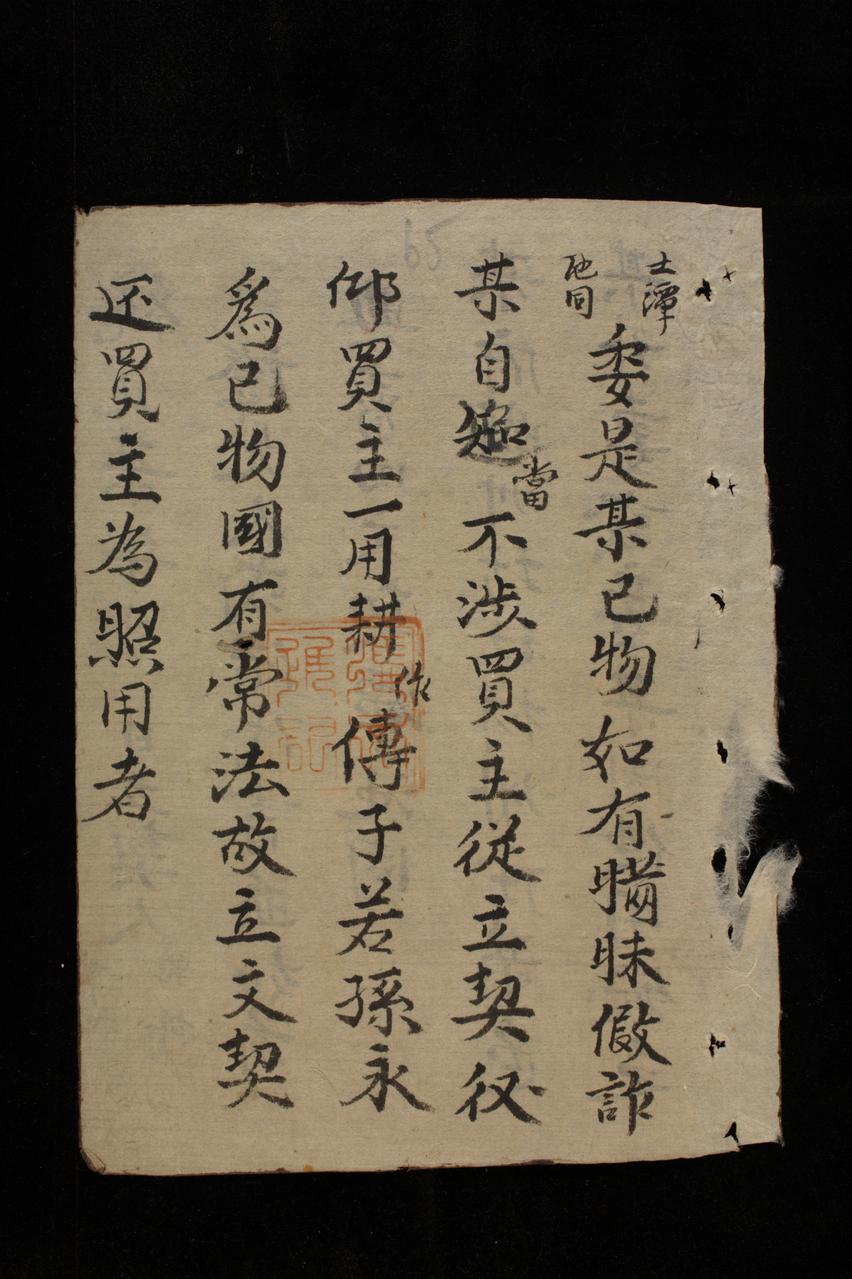 土潭
池同
委是某己物如有瞞昧假詐
某自当當不涉買主従立契後
仰買主一用耕作傳子若孫永
為己物國有常法故立文契
还買主為照用者